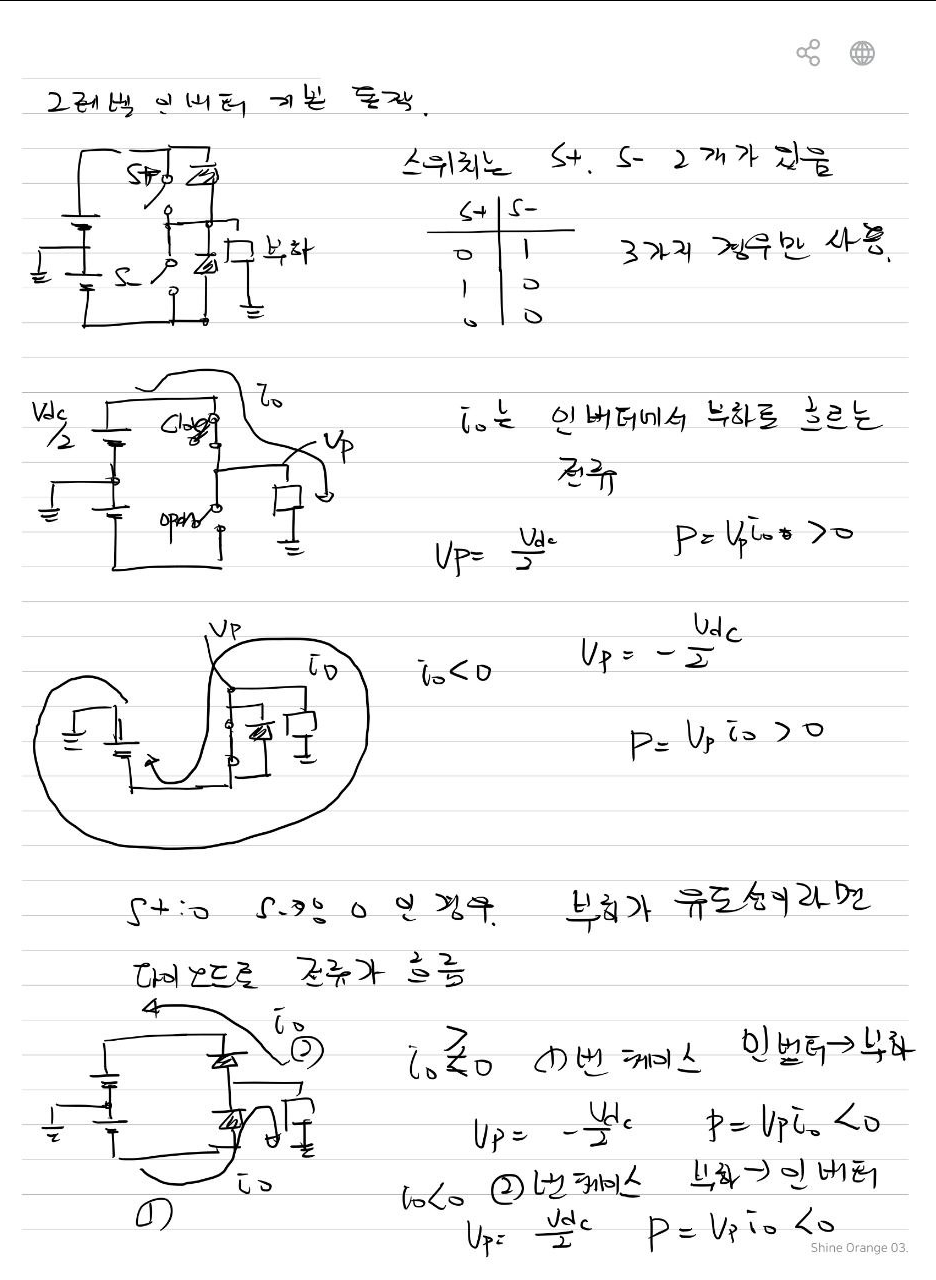 2레벨 인버터 기본 동작.
스위치는 S+, S- 2개가 있음
S+
S-
부하
S+ S-
0 1
1 0
0 0
3가지 경우만 사용.
Vdc/2
Close
open
io
Vp
io는 인버터에서 부하로 흐르는
전류
Vp = Vdc/2
P = Vp io > 0
Vp
io
io < 0
Vp = - Vdc/2
P = Vp io > 0
S+ 0 S- 0 인 경우. 부하가 유도성이라면
다이오드로 전류가 흐름
io
②
io
①
io ≥ 0 ①번 케이스 인벌터 → 부하
Vp = - Vdc/2 P = Vp io < 0
io < 0 ②번 케이스 부하 → 인버터
Vp = Vdc/2 P = Vp io < 0
Shine Orange 03.